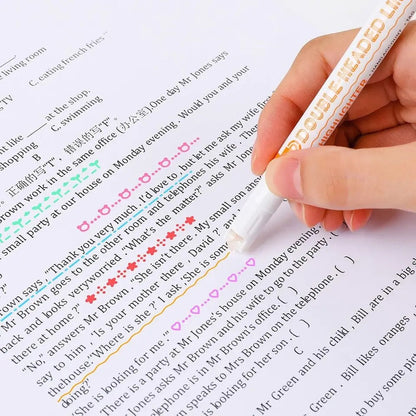 living room
C. eating french fries"
TV
like ___ at the shop.
shopping C. swimming
B
"正确的写"T", 错误的写"F".
Brown work in the same office (办公室).One day Mr Jones says
small party at our house on Monday evening. Would you and your
"Thank you very much, I'd love to, but let me ask my wife
Brown goes to the other room and telephones his wife. The
back and looks veryworried. "What's the matter?" asks Mr
there at home?"
"No," answers Mr Brown, "She isn't there. My small son
say to him, 'Is your mother there, David?'
thehouse."Where is she?' I ask. 'She is
doing?'
'She is looking for me."
There is a party at Mr Jones's house on Monday evening. ( )
Jones asks Mr Brown and his wife to go to the party. ( )
Brown is in Mr Brown's office. ( )
is looking for her son. ( )
speaks to Mrs Brown on the telephone. ( )
C
Mr Green and his child. Bill are in a big
Bill likes oranges
DOUBLE HEADED LINE
HIGHLIGHTER